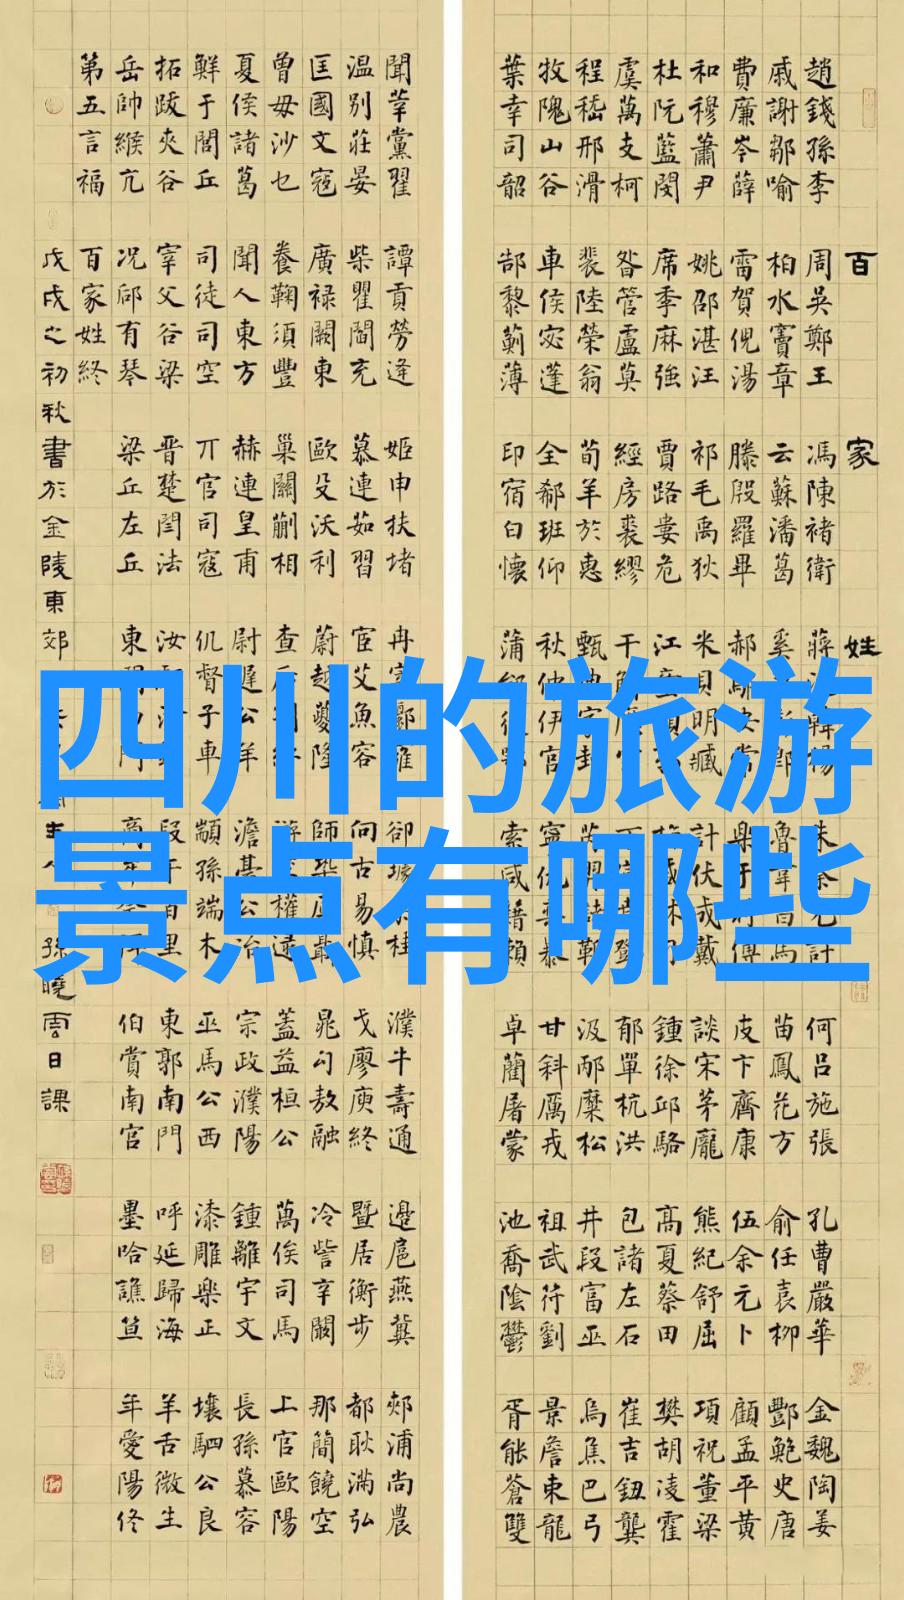 四川的旅游
景点有哪些
百家姓
趙錢孫李 周吳鄭王 馮陳褚衛 蔣 何呂施張 孔曹嚴華 金魏陶姜
戚謝鄒喻 柏水竇章 云蘇潘葛 奚 苗鳳花方 俞任袁柳 酆鮑史唐
費廉岑薛 雷賀倪湯 滕殷羅畢 郝 皮卞齊康 伍余元卜 顧孟平黃
和穆蕭尹 姚邵湛汪 祁毛禹狄 米貝明臧 計伏成戴 談宋茅龐 熊紀舒屈 項祝董梁
杜阮藍閔 席季麻強 賈路婁危 江 鍾徐邱駱 高夏蔡田 樊胡凌霍
虞萬支柯 昝管盧莫 經房裘繆 干 郁單杭洪 包諸左石 崔吉鈕龔
程嵇邢滑 裴陸榮翁 荀羊於惠 甄 汲邴糜松 井段富巫 烏焦巴弓
牧隗山谷 車侯宓蓬 全郗班仰 秋仲伊宮 甘斜厲戎 祖武符劉 景詹束龍
葉幸司韶 郜黎薊薄 印宿白懷 蒲 索咸籍賴 卓藺屠蒙 池喬陰鬱 胥能蒼雙
聞莘黨翟 譚貢勞逄 姬申扶堵 冉 卻 桂 濮牛壽通 邊扈燕冀 郟浦尚農
温別莊晏 柴瞿閻充 慕連茹習 宦艾魚容 向古易慎 戈廖庾終 暨居衡步 都耿滿弘
匡國文寇 廣祿闕東 歐殳沃利 蔚越夔隆 師 晁勾敖融 冷訾辛闞 那簡饒空
曾毋沙乜 養鞠須豐 巢關蒯相 查 游 權逯 蓋益桓公 萬俟司馬 上官歐陽
夏侯諸葛 聞人東方 赫連皇甫 尉遲公羊 澹臺公冶 宗政濮陽 鍾離宇文 長孫慕容
鮮于閭丘 司徒司空 丌官司寇 仉督子車 顓孫端木 巫馬公西 漆雕樂正 壤駟公良
拓跋夾谷 宰父谷梁 晋楚閆法 汝 段干百里 東郭南門 呼延歸海 羊舌微生
岳帥緱亢 况郈有琴 梁丘左丘 東 門 伯賞南宮 墨哈譙笪 年愛陽佟
第五言福 百家姓終
戊戌之初秋書於金陵東郊 孫曉雲日課